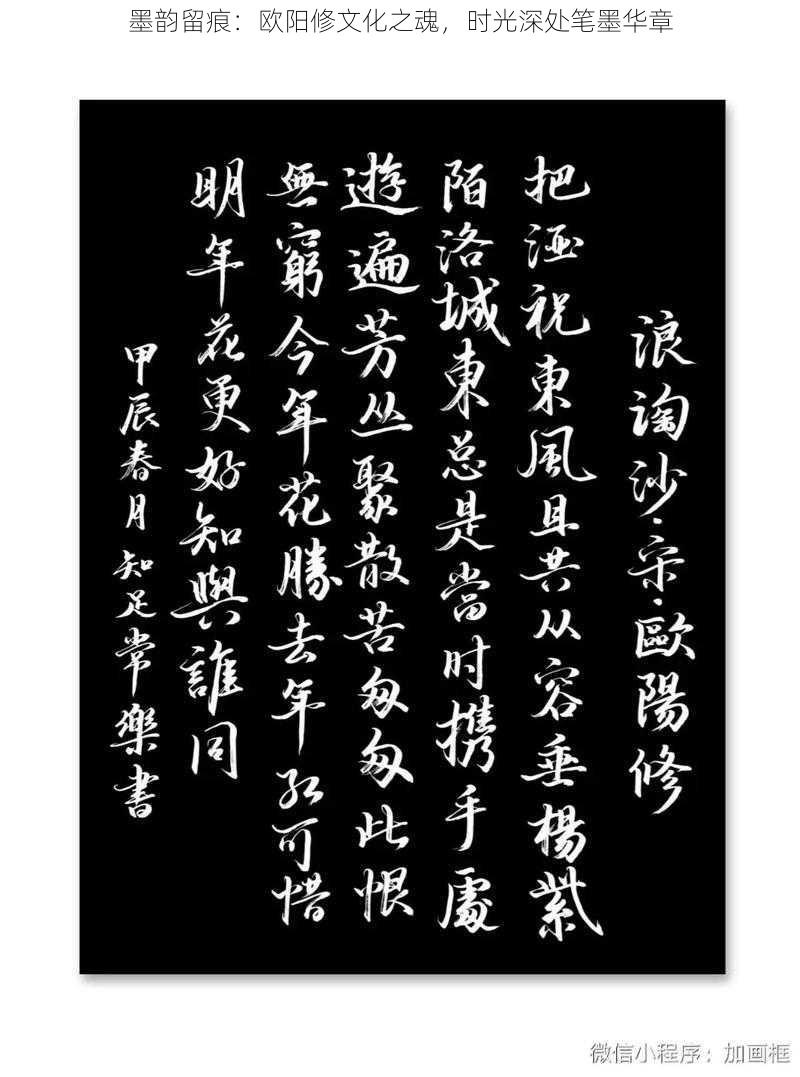 墨韵留痕：欧阳修文化之魂，时光深处笔墨华章
浪淘沙·宋·歐陽修
把酒祝東風且共从容垂楊紫
陌洛城東总是當时携手處
遊遍芳丛聚散苦匆匆此恨
無窮今年花勝去年红可惜
明年花更好知與誰同
甲辰春月知足常樂書
微信小程序：加画框